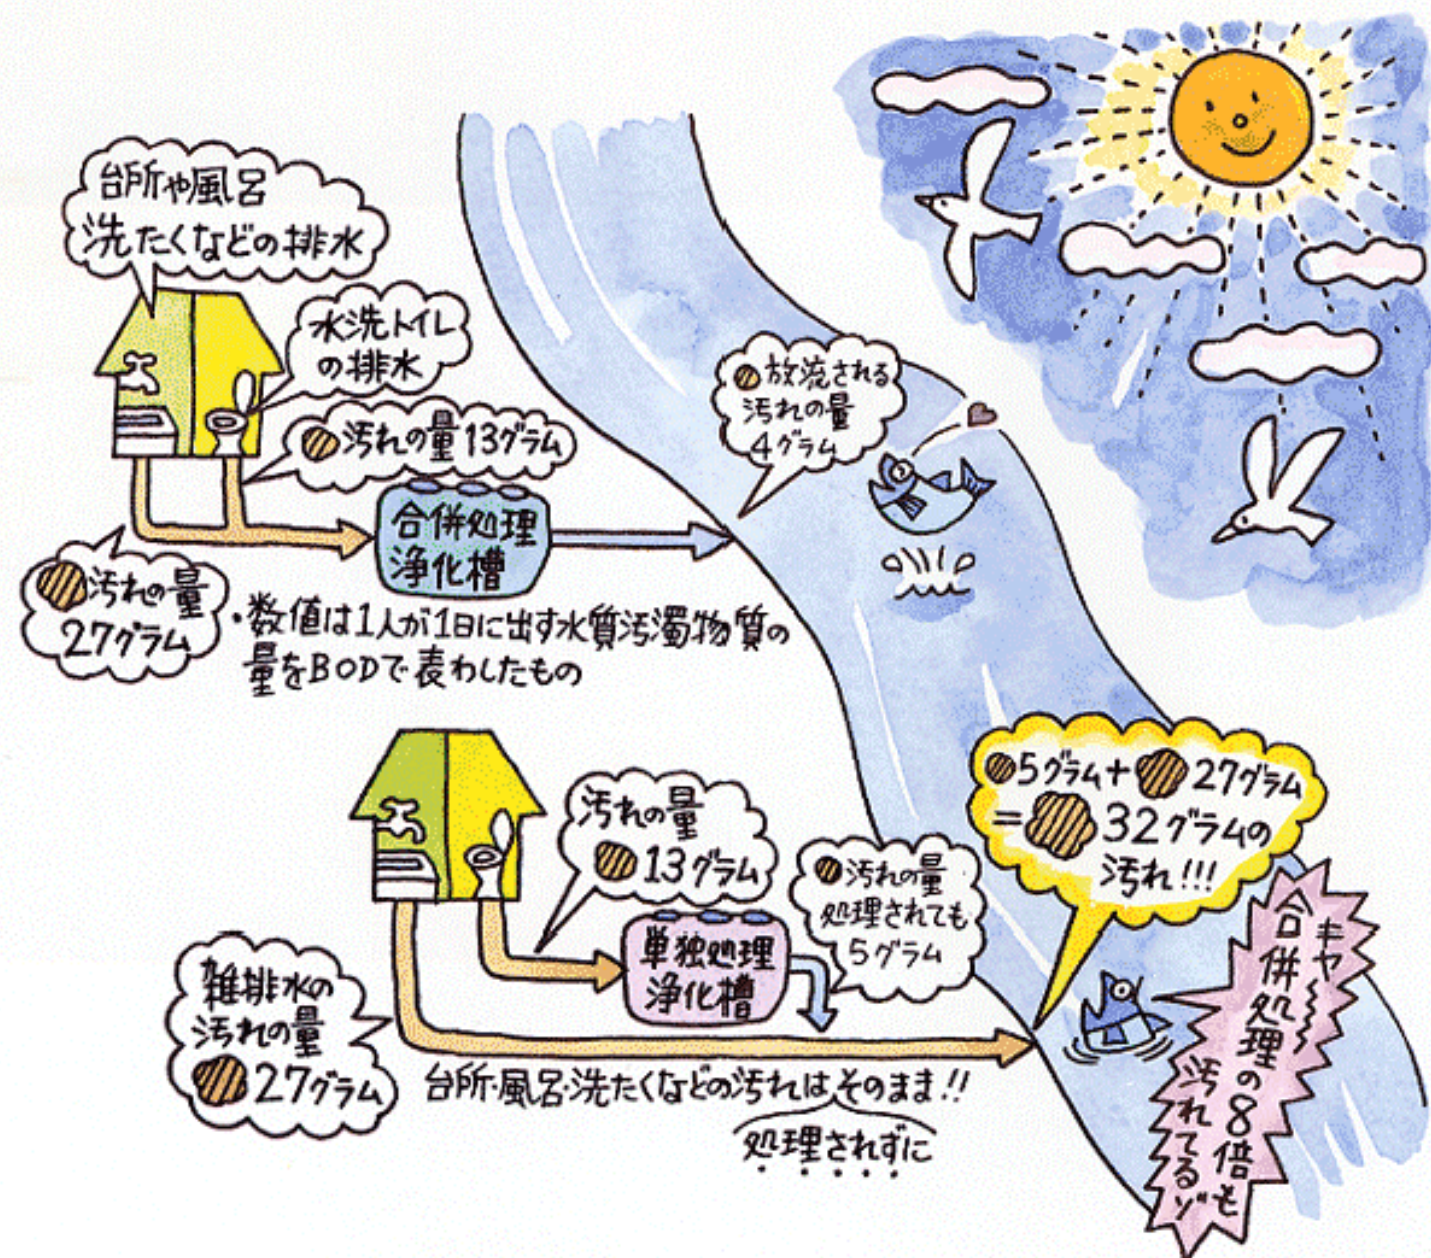 台所や風呂
洗たくなどの排水
水洗トイレ
の排水
汚れの量13グラム
汚れの量
27グラム
合併処理
浄化槽
放流される
汚れの量
4グラム
・数値は1人が1日に出す水質汚濁物質の
量をBODで表わしたもの
汚れの量
13グラム
単独処理
浄化槽
汚れの量
処理されても
5グラム
雑排水の
汚れの量
27グラム
台所・風呂・洗たくなどの汚れはそのまま!!
処理されずに
5グラム+27グラム
=32グラムの
汚れ!!!
キャ〜
合併処理の8倍も
汚れてるゾ